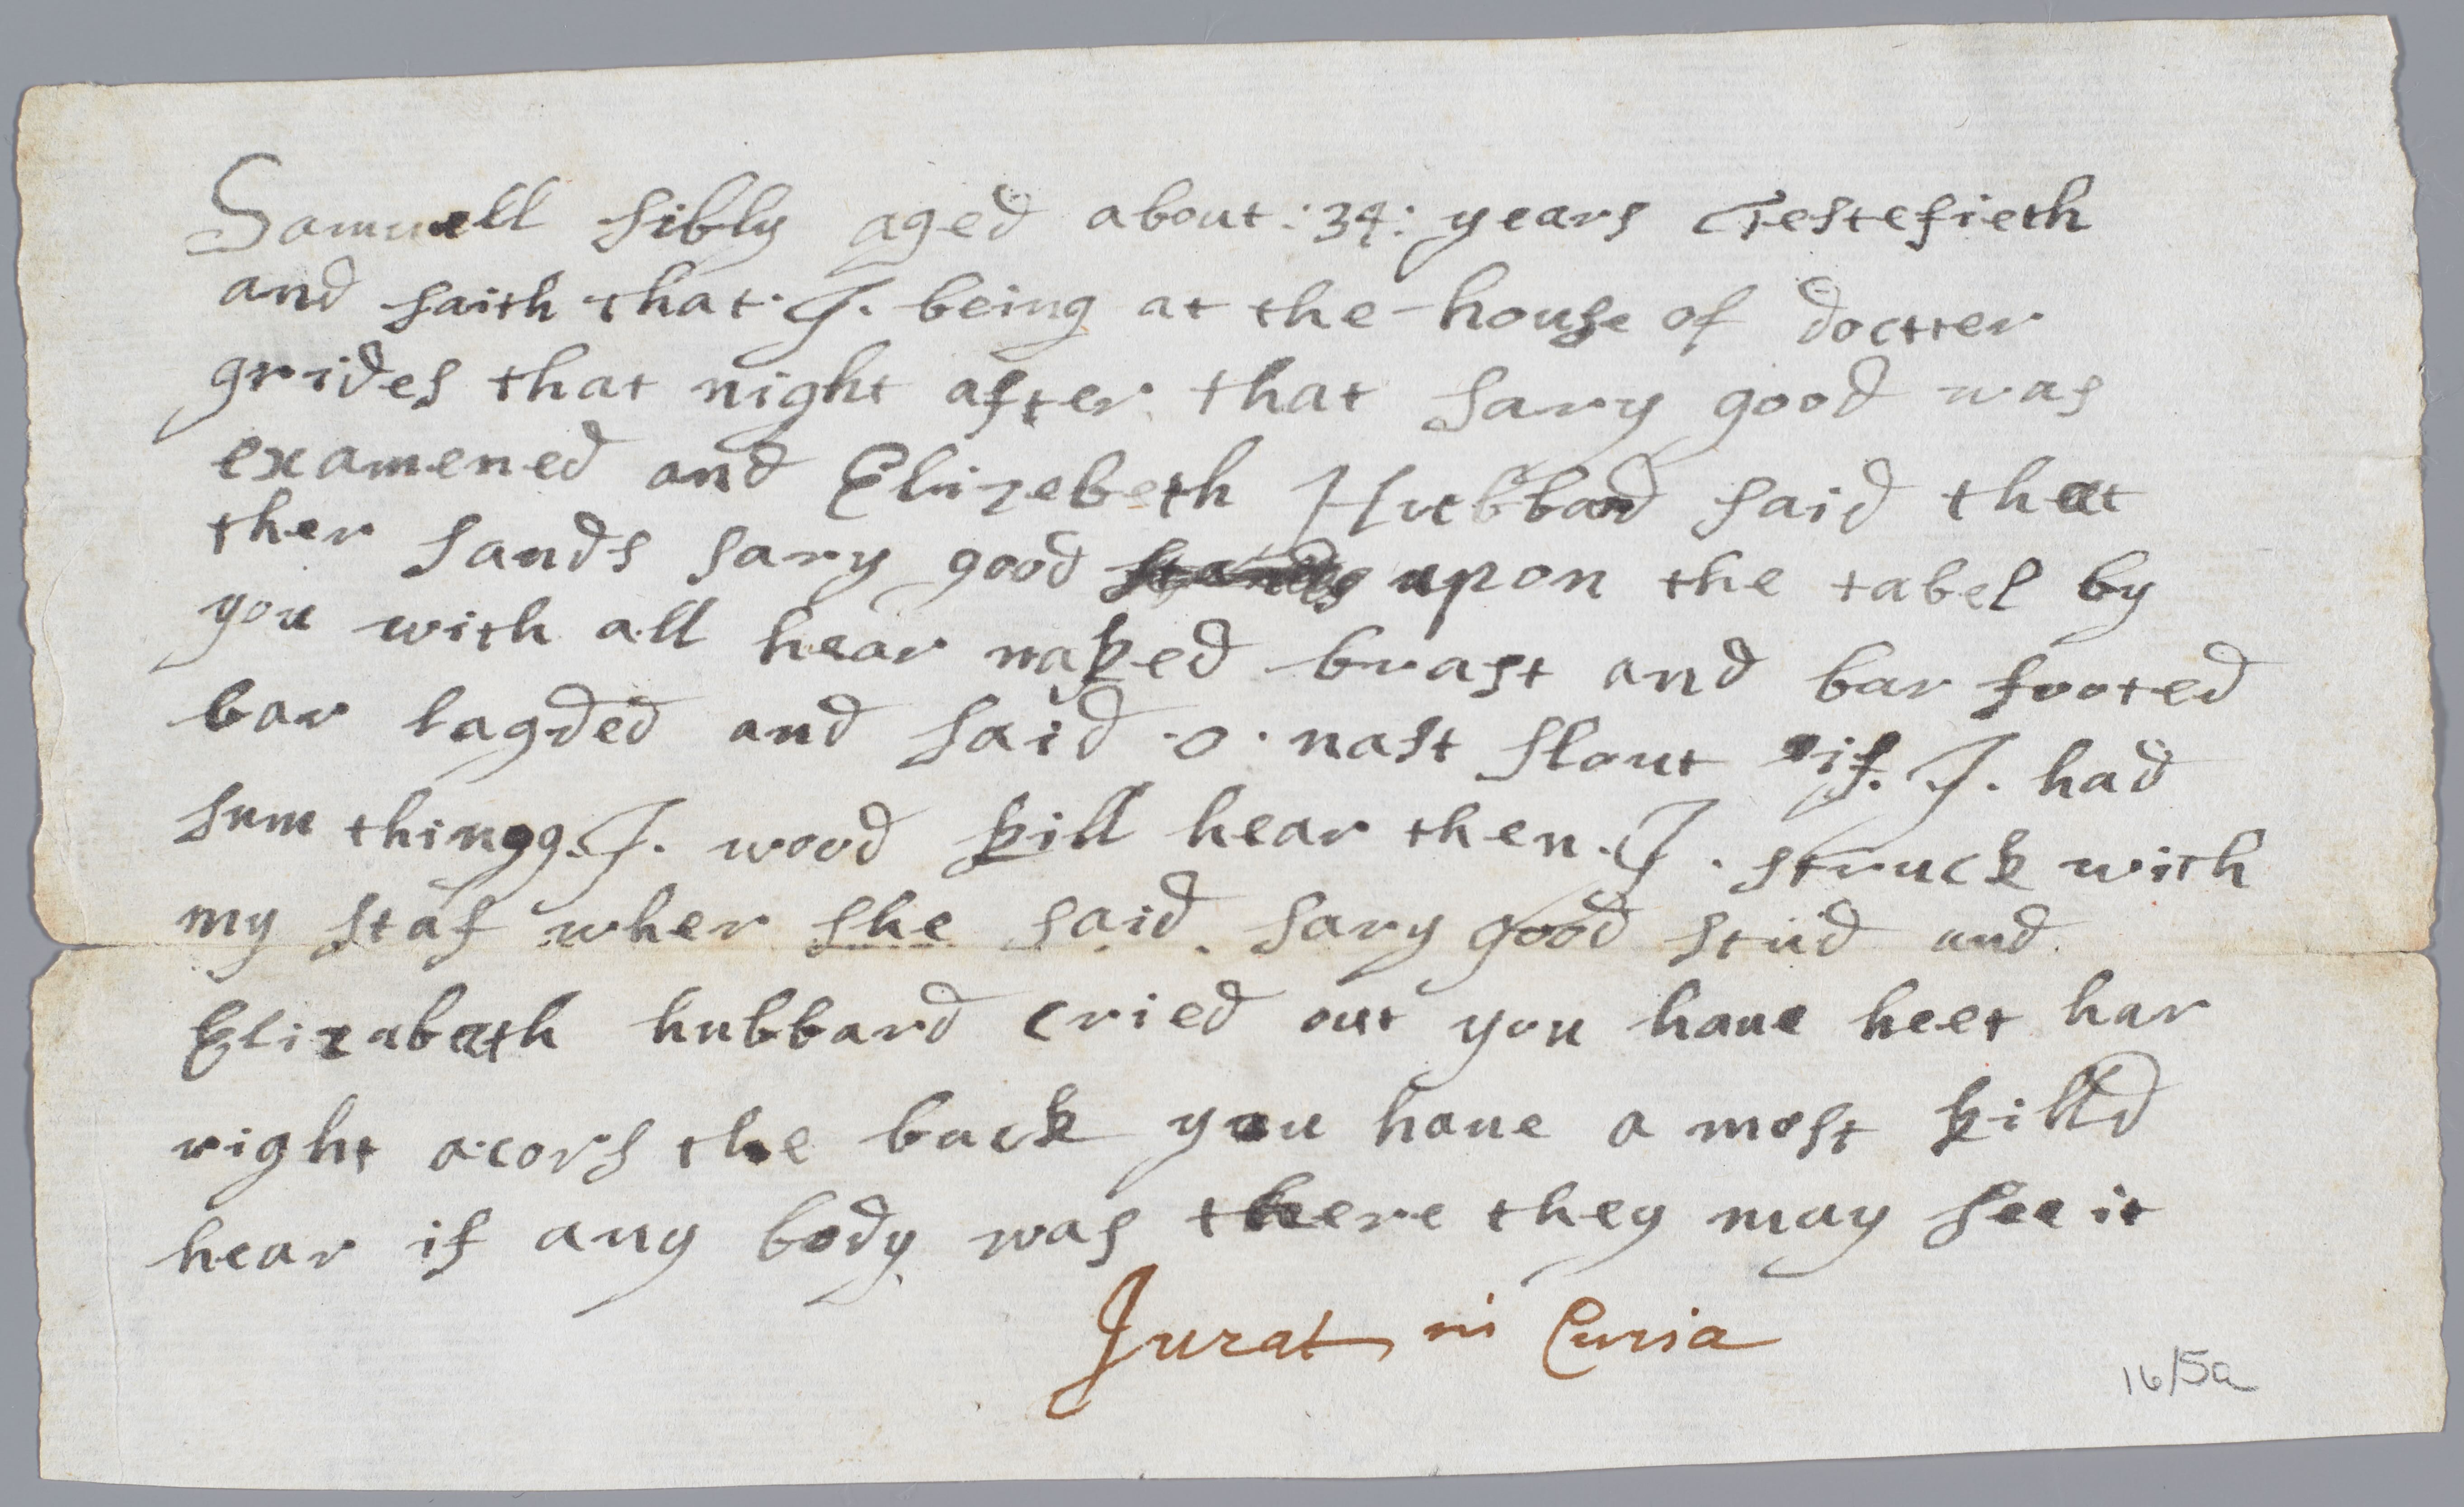 Samuell Sibly aged about :34: years Testefieth
and saith that. I. being at the house of docter
grides that night after that Sary good was
examened and Elizebeth Hubbard said that
ther sands Sary good upon the tabel by
you with all hear naked brast and bar footed
bar lagded and said .o. nast slout if. I. had
sum thingg. I. wood kill hear then. I. struck with
my staf wher she said Sary good stud and
Elizabath hubbard cried out you haue heet har
right acors the back you haue a most killd
hear if any body was there they may see it
Jurat in Curia
16/5a